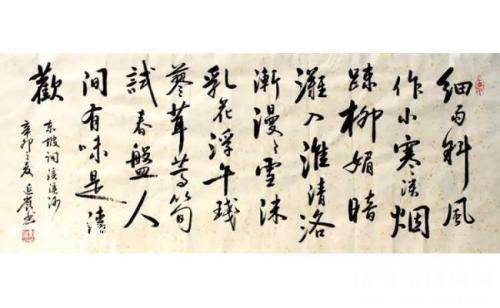 細雨斜風
作小寒淡烟
疎柳媚晴
灘入淮清洛
漸漫漫雪沫
乳花浮午琖
蓼茸蒿筍
試春盤人
間有味是清
歡
东坡词浣溪沙
辛卯之夏